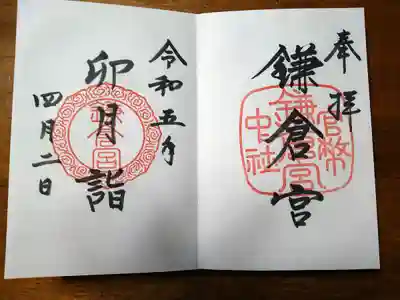 奉拝
鎌倉宮
官幣
鎌倉宮
中社
令和五年
卯月詣
四月二日